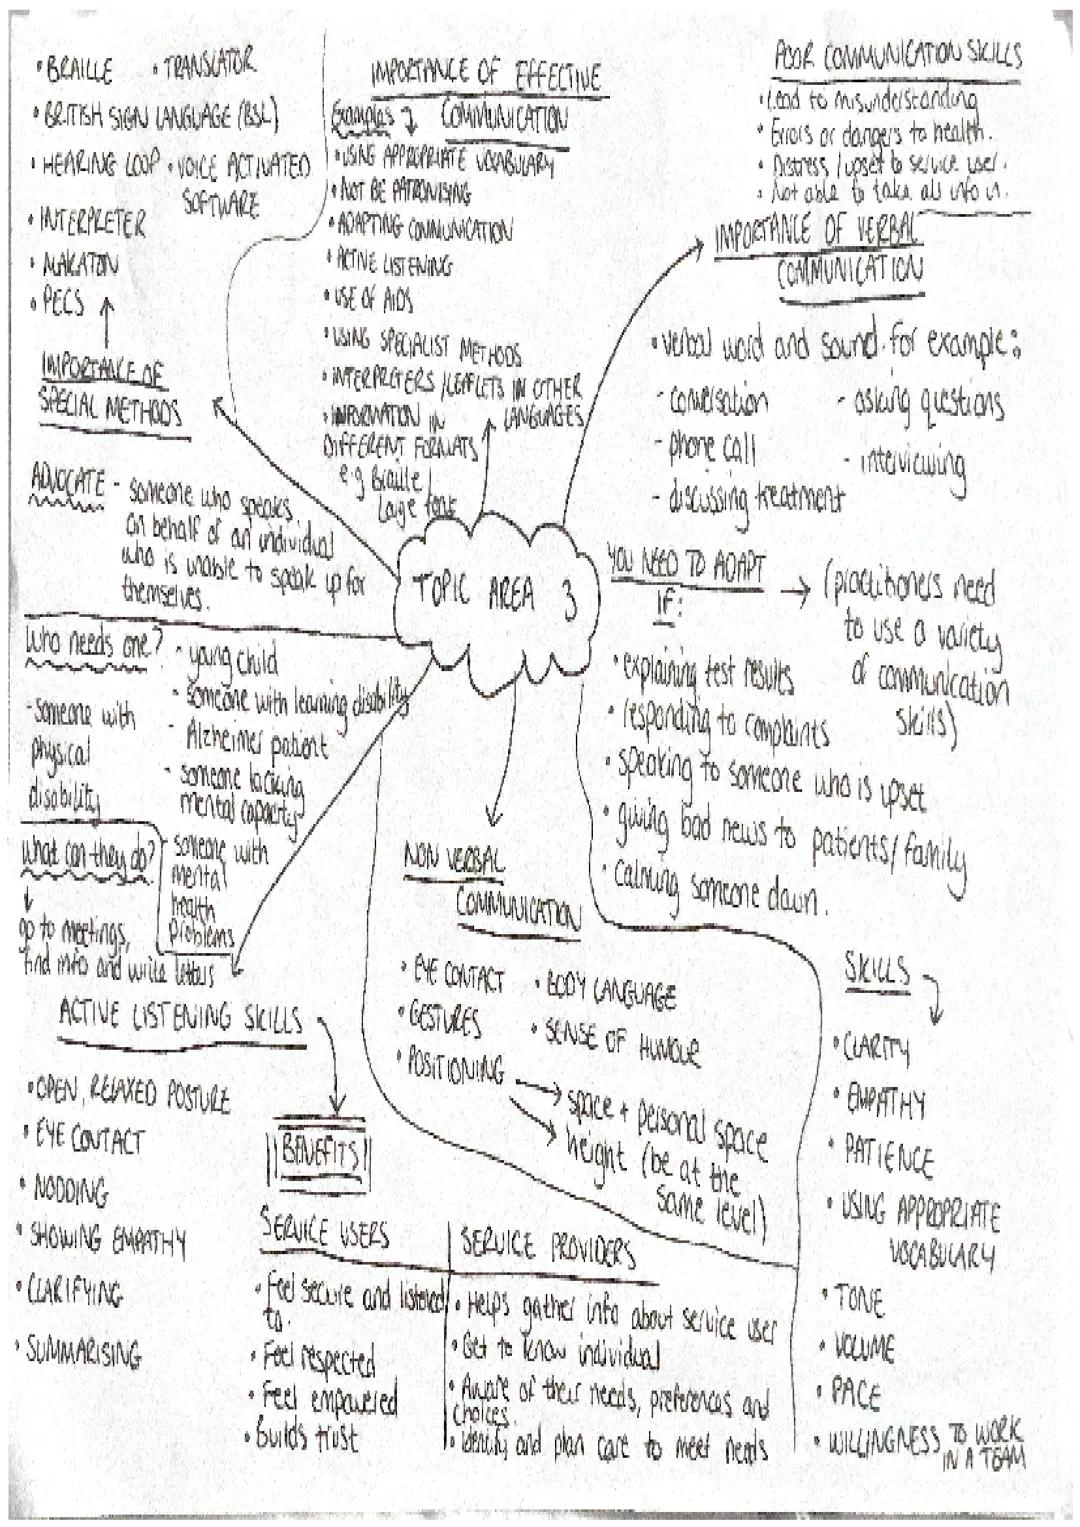 • BRAILLE • TRANSLATOR
• BRITISH SIGN LANGUAGE (BSL)
• HEARING LOOP • VOICE ACTIVATED
SOFTWARE
• INTERPRETER
• MAKATON
• PECS
IMPORTANCE OF
SPECIAL METHODS
IMPORTANCE OF EFFECTIVE
COMMUNICATION
Examples
• USING APPROPRIATE VOCABULARY
• NOT BE PATRONISING
• ADAPTING COMMUNICATION
• ACTIVE LISTENING
• USE OF AIDS
• USING SPECIALIST METHODS
• INTERPRETERS / LEAFLETS IN OTHER
LANGUAGES
• INFORMATION IN
DIFFERENT FORMATS
e.g Braille
Large font
POOR COMMUNICATION SKILLS
• Lead to misunderstanding
• Errors or dangers to health.
• Distress / upset to service user.
• Not able to take all info in.
IMPORTANCE OF VERBAL
COMMUNICATION
• verbal word and sound. for example:
- conversation - asking questions
- phone call - interviewing
- discussing treatment
ADVOCATE - someone who speaks
on behalf of an individual
who is unable to speak up for
themselves.
Who needs one?
- young child
- someone with learning disability
- Alzheimer patient
- someone lacking
mental capacity
- someone with
mental
health
problems
- someone with
physical
disability
What can they do?
go to meetings,
find info and write letters
TOPIC AREA 3
YOU NEED TO ADAPT
IF:
(practitioners need
to use a variety
of communication
skills)
• explaining test results
• responding to complaints
• speaking to someone who is upset
• giving bad news to patients/family
• Calming someone down.
NON VERBAL
COMMUNICATION
• EYE CONTACT • BODY LANGUAGE
• GESTURES • SENSE OF HUMOUR
• POSITIONING
space + personal space
height (be at the
same level)
SKILLS
• CLARITY
• EMPATHY
• PATIENCE
• USING APPROPRIATE
VOCABULARY
• TONE
• VOLUME
• PACE
• WILLINGNESS TO WORK
IN A TEAM
ACTIVE LISTENING SKILLS
• OPEN, RELAXED POSTURE
• EYE CONTACT
• NODDING
• SHOWING EMPATHY
• CLARIFYING
• SUMMARISING
BENEFITS
SERVICE USERS
• Feel secure and listened
to.
• Feel respected
• Feel empowered
• Builds trust
SERVICE PROVIDERS
• Helps gather info about service user
• Get to know individual
• Aware of their needs, preferences and
choices.
• Identify and plan care to meet needs